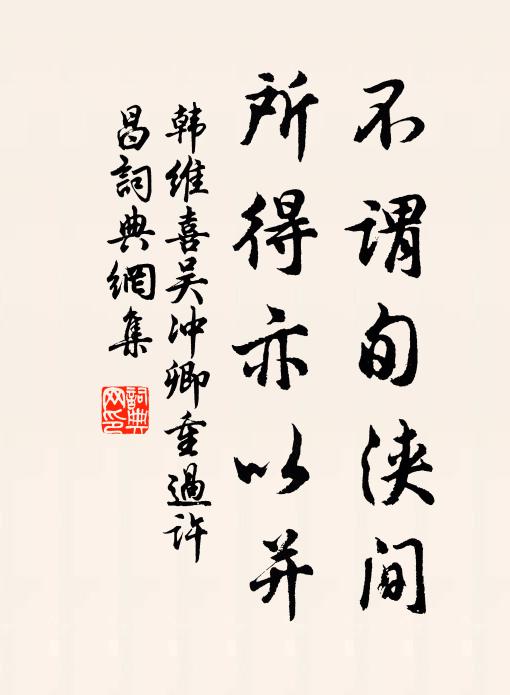 不谓旬浃间
所得亦以并
韩维喜吴冲卿重過许
昌詞典網集
詞典
网印